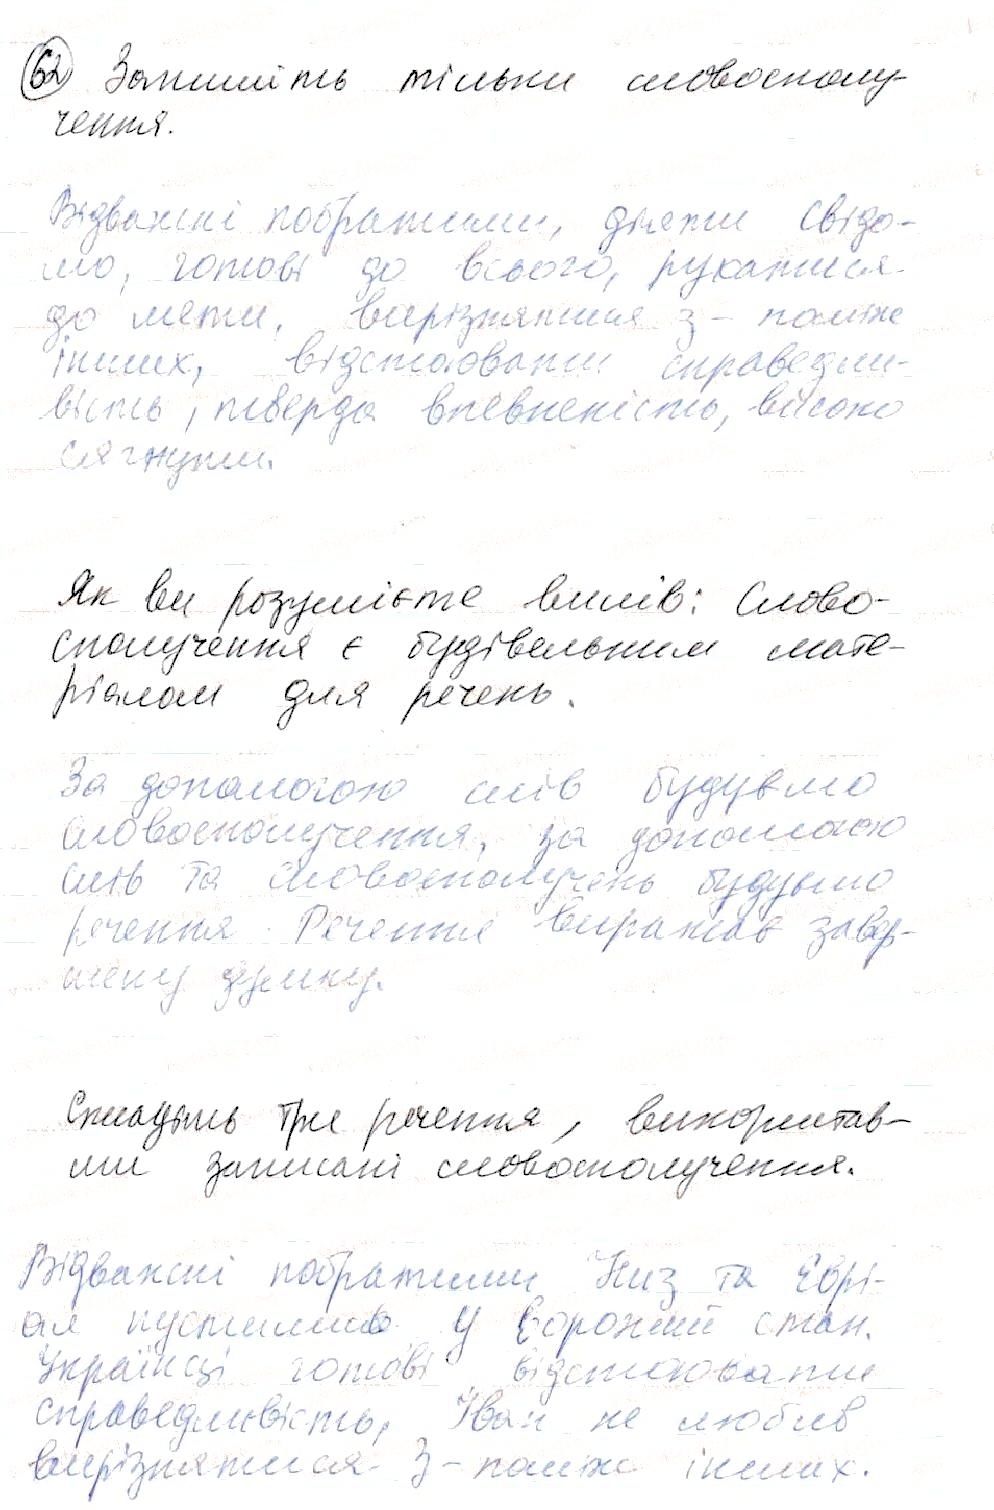 62 Запишіть тільки словосполу-
чення.
Відважні побратими, діяти свідо-
мо, готові до всього, рухатися
до мети, вирізнятися з-поміж
інших, відстоювати справедли-
вість, тверда впевненість, високо
сягнути.
Як ви розумієте вислів: Слово-
сполучення є будівельним мате-
ріалом для речень.
За допомогою слів будуємо
словосполучення, за допомогою
слів та словосполучень будуємо
речення. Речення виражає завер-
шену думку.
Складіть три речення, використав-
ши записані словосполучення.
Відважні побратими Низ та Еврі-
ал пустились у ворожий стан.
Українці готові відстоювати
справедливість, Іван не любив
вирізнятися з-поміж інших.